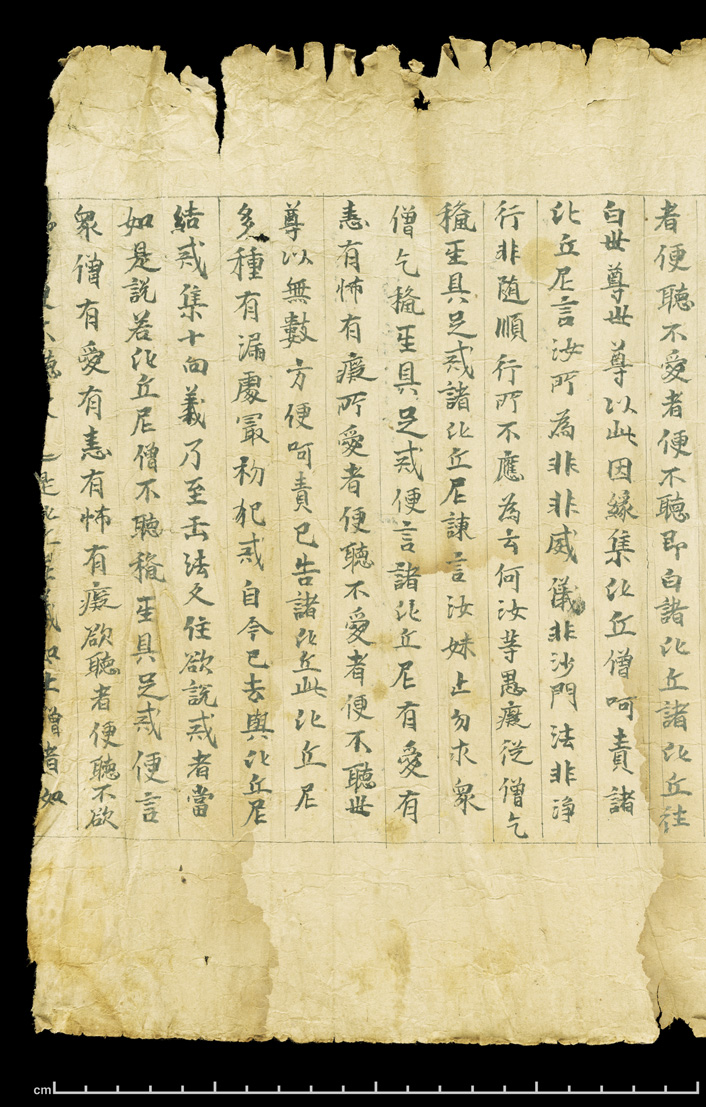 者便聽不愛者便不聽即白諸比丘諸比丘往
白世尊世尊以此因緣集比丘僧呵責諸
比丘尼言汝所為非非威儀非沙門法非淨
行非随順行所不應為云何汝等愚癡從僧乞
𥠢𤯔具足戒諸比丘尼諫言汝妹止勿求衆
僧乞𥠢𤯔具足戒便言諸比丘尼有愛有
恚有怖有癡所愛者便聽不愛者便不聽世
尊以無數方便呵責已告諸比丘此比丘尼
多種有漏處冣初犯戒自今已去與比丘尼
結戒集十句義乃至𠙺法久住欲說戒者當
如是說若比丘尼僧不聽𥠢𤯔具足戒便言
衆僧有愛有恚有怖有癡欲聽者便聽不欲
聽義如上僧者如